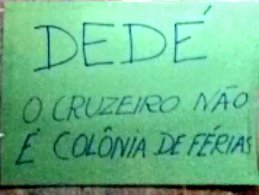 DEDÉ
O CRUZEIRO NÃO
É COLÔNIA DE FÉRIAS